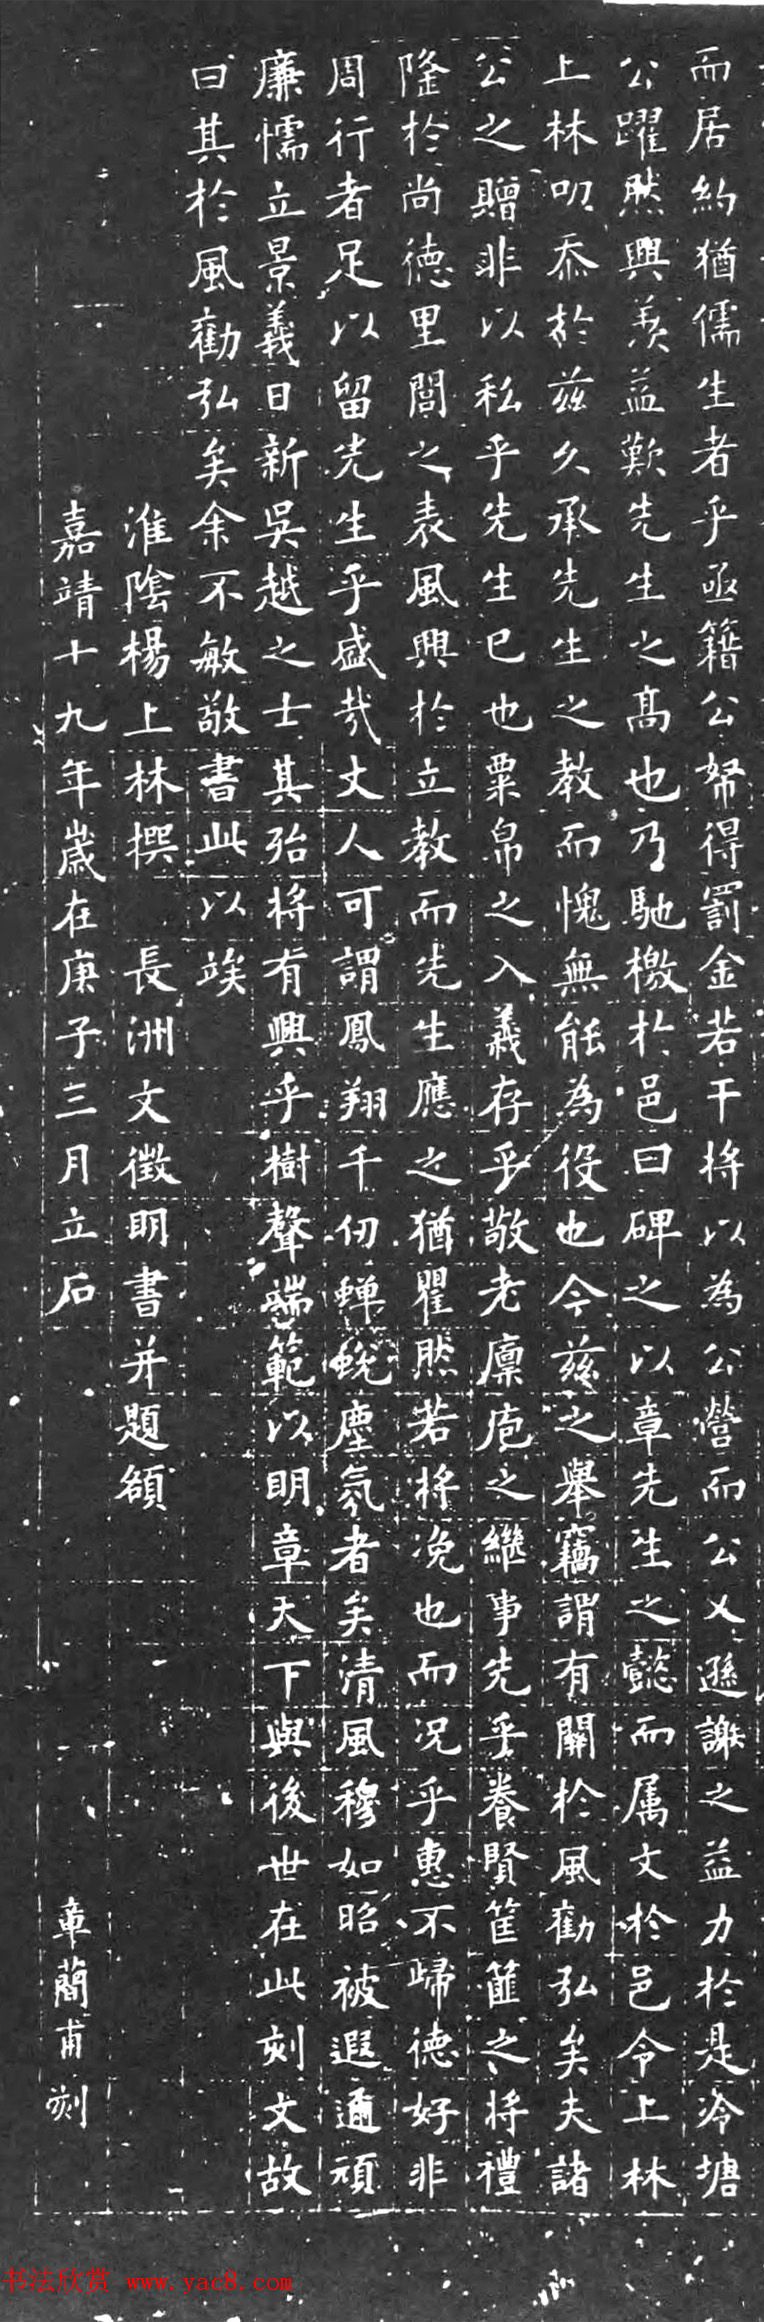 而居約猶儒生者乎亟籍公帑得罰金若干將以為公營而公又遜謝之益力於是冷塘
公躍然興羨益歎先生之高也乃馳檄於邑曰碑之以章先生之懿而属文於邑令上林
上林叨忝於茲久承先生之教而愧無能為役也今茲之舉竊謂有關於風勸弘矣夫諸
公之贈非以私乎先生已也粟帛之入義存乎敬老廪庖之繼事先乎養賢筐篚之將禮
隆於尚德里閭之表風興於立教而先生應之猶瞿然若將凂也而況乎惠不歸德好非
周行者足以留先生乎盛哉丈人可謂鳳翔千仞蝉蛻塵氛者矣清風穆如昭被遐邇頑
廉懦立景義日新吳越之士其殆將有興乎樹聲端範以明章天下與後世在此刻文故
曰其於風勸弘矣余不敏敬書此以竢
淮陰楊上林撰 長洲文徵明書并題額
嘉靖十九年歲在庚子三月立石 章簡甫刻
书法欣赏 www.yac8.com